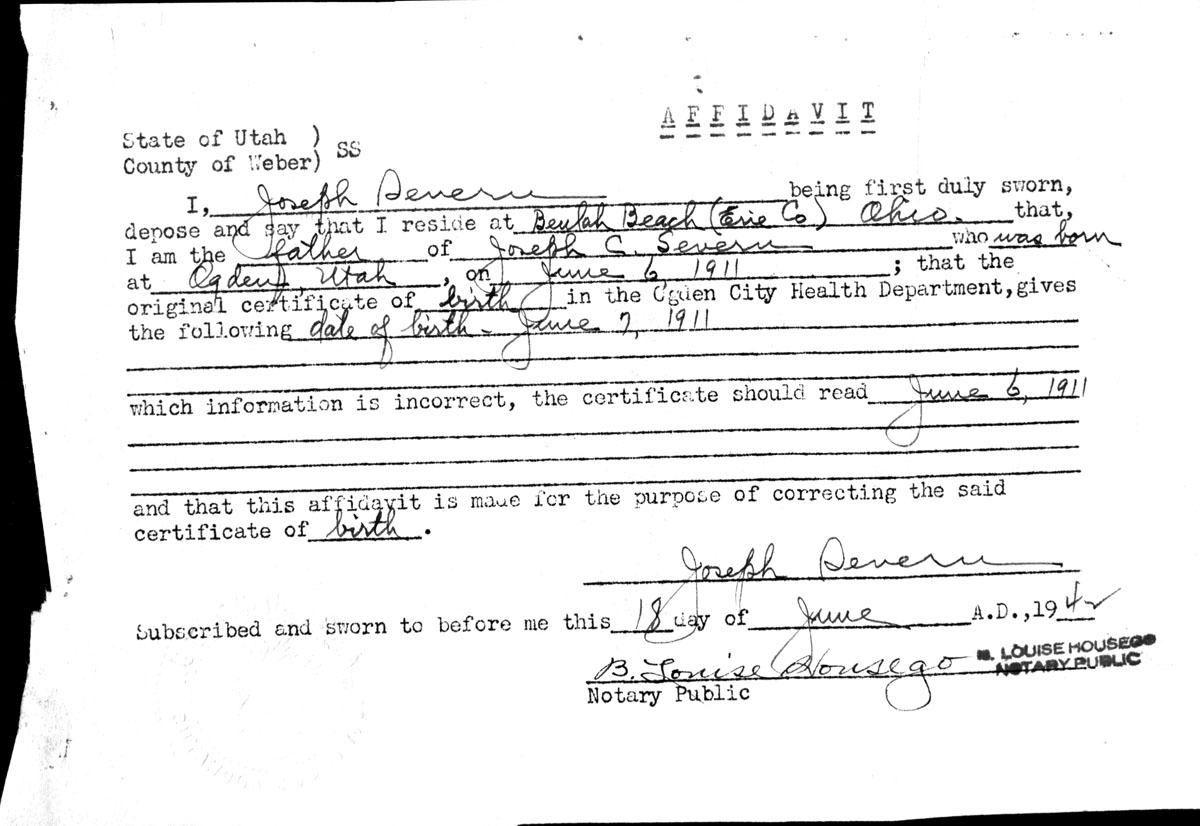 A F F I D A V I T
State of Utah )
County of Weber) SS
I, Joseph Severn being first duly sworn,
depose and say that I reside at Beulah Beach (Erie Co) Ohio. that,
I am the father of Joseph C. Severn who was born
at Ogden, Utah, on June 6, 1911; that the
original certificate of birth in the Ogden City Health Department, gives
the following date of birth - June 7, 1911
which information is incorrect, the certificate should read June 6, 1911
and that this affidavit is made for the purpose of correcting the said
certificate of birth.
Joseph Severn
Subscribed and sworn to before me this 18 day of June A.D., 1942
B. Louise Housego B. LOUISE HOUSEGO
NOTARY PUBLIC
Notary Public